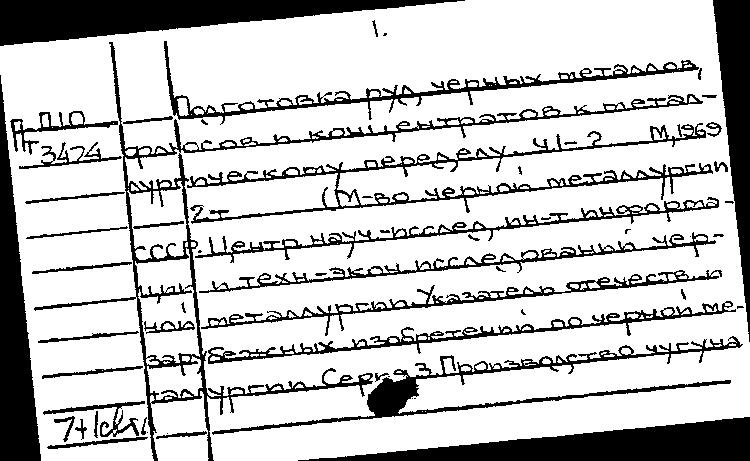 1.
П10 Подготовка руд, черных металлов,
Пт 3424 флюсов и концентратов к метал-
лургическому переделу. Ч1-2 М, 1969
2т (М-во черной металлургии
СССР. Центр науч.-исслед. ин-т информа-
ции и техн-экон исследований чер-
ной металлургии. Указатель отечеств. и
зарубежных изобретений по черной ме-
таллургии Серия 3. Производство чугуна